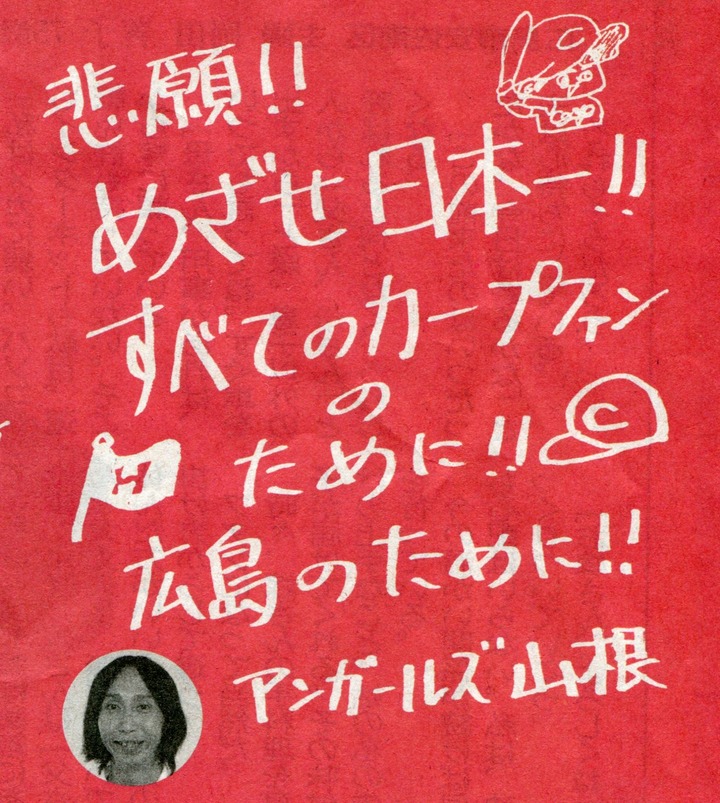 悲願!!
めざせ日本一!!
すべてのカープファン
の
ために!!
C
H
広島のために!!
アンガールズ山根